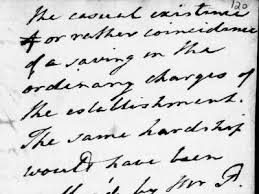 120
The casual existence
or rather coincidence
of a saving in the
ordinary charges of
the establishment.
The same hardship
would have been
by Mr